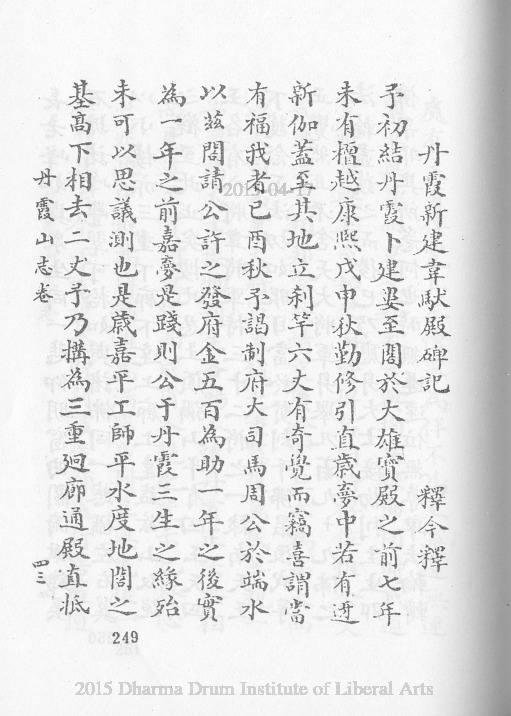 丹霞新建韋馱殿碑記　釋今釋
予初結丹霞卜建婁至閣於大雄寶殿之前七年
未有檀越康熙戊申秋勤修引直歲夢中若有迓
新伽藍至其地立刹竿六丈有奇覺而竊喜謂當
有福我者己酉秋予謁制府大司馬周公於端水
以茲閣請公許之發府金五百為助一年之後實
為一年之前嘉夢是踐則公于丹霞三生之緣殆
未可以思議測也是歲嘉平工師平水度地閣之
基高下相去二丈予乃搆為三重廻廊通殿直抵
丹霞山志卷
四三
249
2015-04-17
2015 Dharma Drum Institute of Liberal Arts